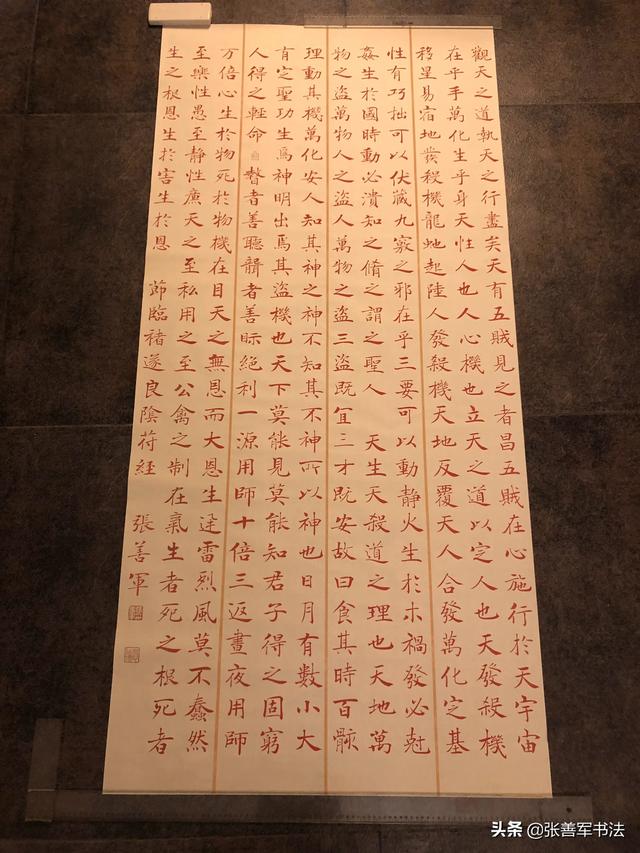 觀天之道執天之行盡矣天有五賊見之者昌五賊在心施行於天宇宙
在乎手萬化生乎身天性人也人心機也立天之道以定人也天發殺機
移星易宿地發殺機龍虵起陸人發殺機天地反覆天人合發萬化定基
性有巧拙可以伏藏九竅之邪在乎三要可以動靜火生於木禍發必尅
姦生於國時動必潰知之脩之謂之聖人 天生天殺道之理也天地萬
物之盜萬物人之盜人萬物之盜三盜既宜三才既安故曰食其時百骸
理動其機萬化安人知其神之神不知其不神所以神也日月有數小大
有定聖功生焉神明出焉其盜機也天下莫能見莫能知君子得之固窮
人得之輕命 瞽者善聽聾者善眎絕利一源用師十倍三返晝夜用師
万倍心生於物死於物機在目天之無恩而大恩生迅雷烈風莫不蠢然
至樂性愚至靜性廉天之至私用之至公禽之制在氣生者死之根死者
生之根恩生於害生於恩 節臨褚遂良陰苻經 張善軍
头条 @张善军书法